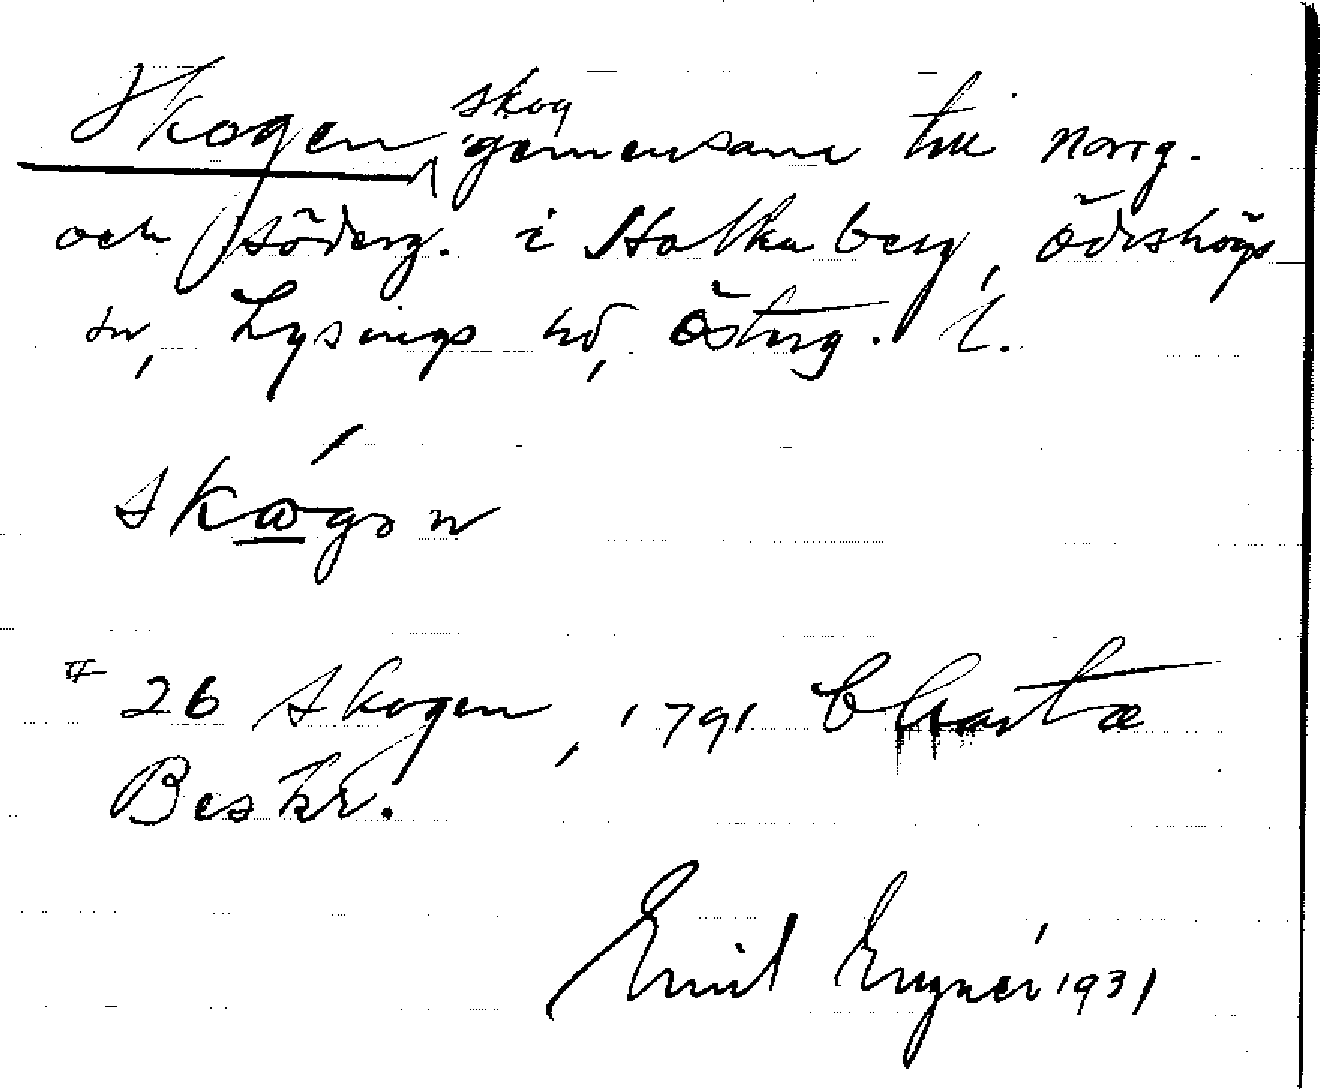 Skogen, skog gemensam till Norrg.
och Söderg. i Holkaberg, Ödeshögs
sn, Lysings hd, Österg. l.
skωgən
# 26 Skogen, 1791 Charta
Beskr.
Emil 1931